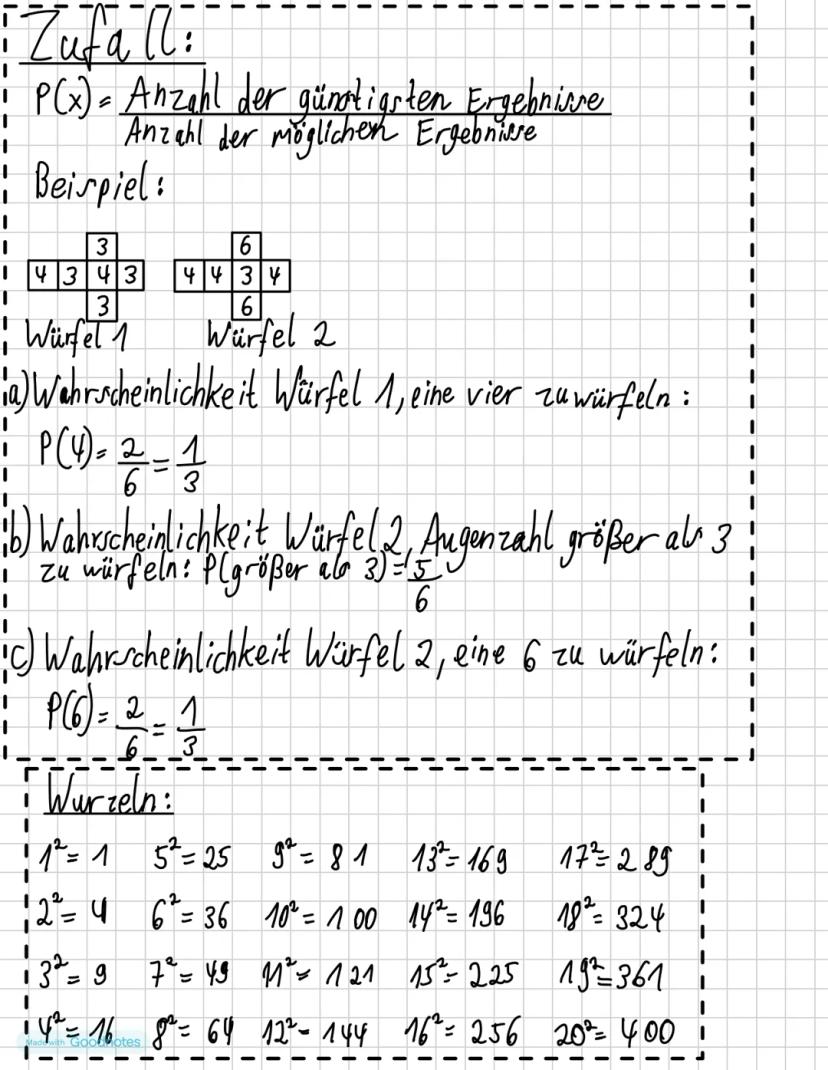 Zufall:
P(x) = Anzahl der günstigsten Ergebnisse
Anzahl der möglichen Ergebnisse
Beispiel:
3 6
4 3 4 3 4 4 3 4
3 6
Würfel 1 Würfel 2
a) Wahrscheinlichkeit Würfel 1, eine vier zu würfeln:
P(4) = 2/6 = 1/3
b) Wahrscheinlichkeit Würfel 2, Augenzahl größer als 3
zu würfeln: P(größer als 3) = 5/6
c) Wahrscheinlichkeit Würfel 2, eine 6 zu würfeln:
P(6) = 2/6 = 1/3
Wurzeln:
1² = 1 5² = 25 9² = 81 13² = 169 17² = 289
2² = 4 6² = 36 10² = 100 14² = 196 18² = 324
3² = 9 7² = 49 11² = 121 15² = 225 19² = 361
4² = 16 8² = 64 12² = 144 16² = 256 20² = 400
Made with Goodnotes